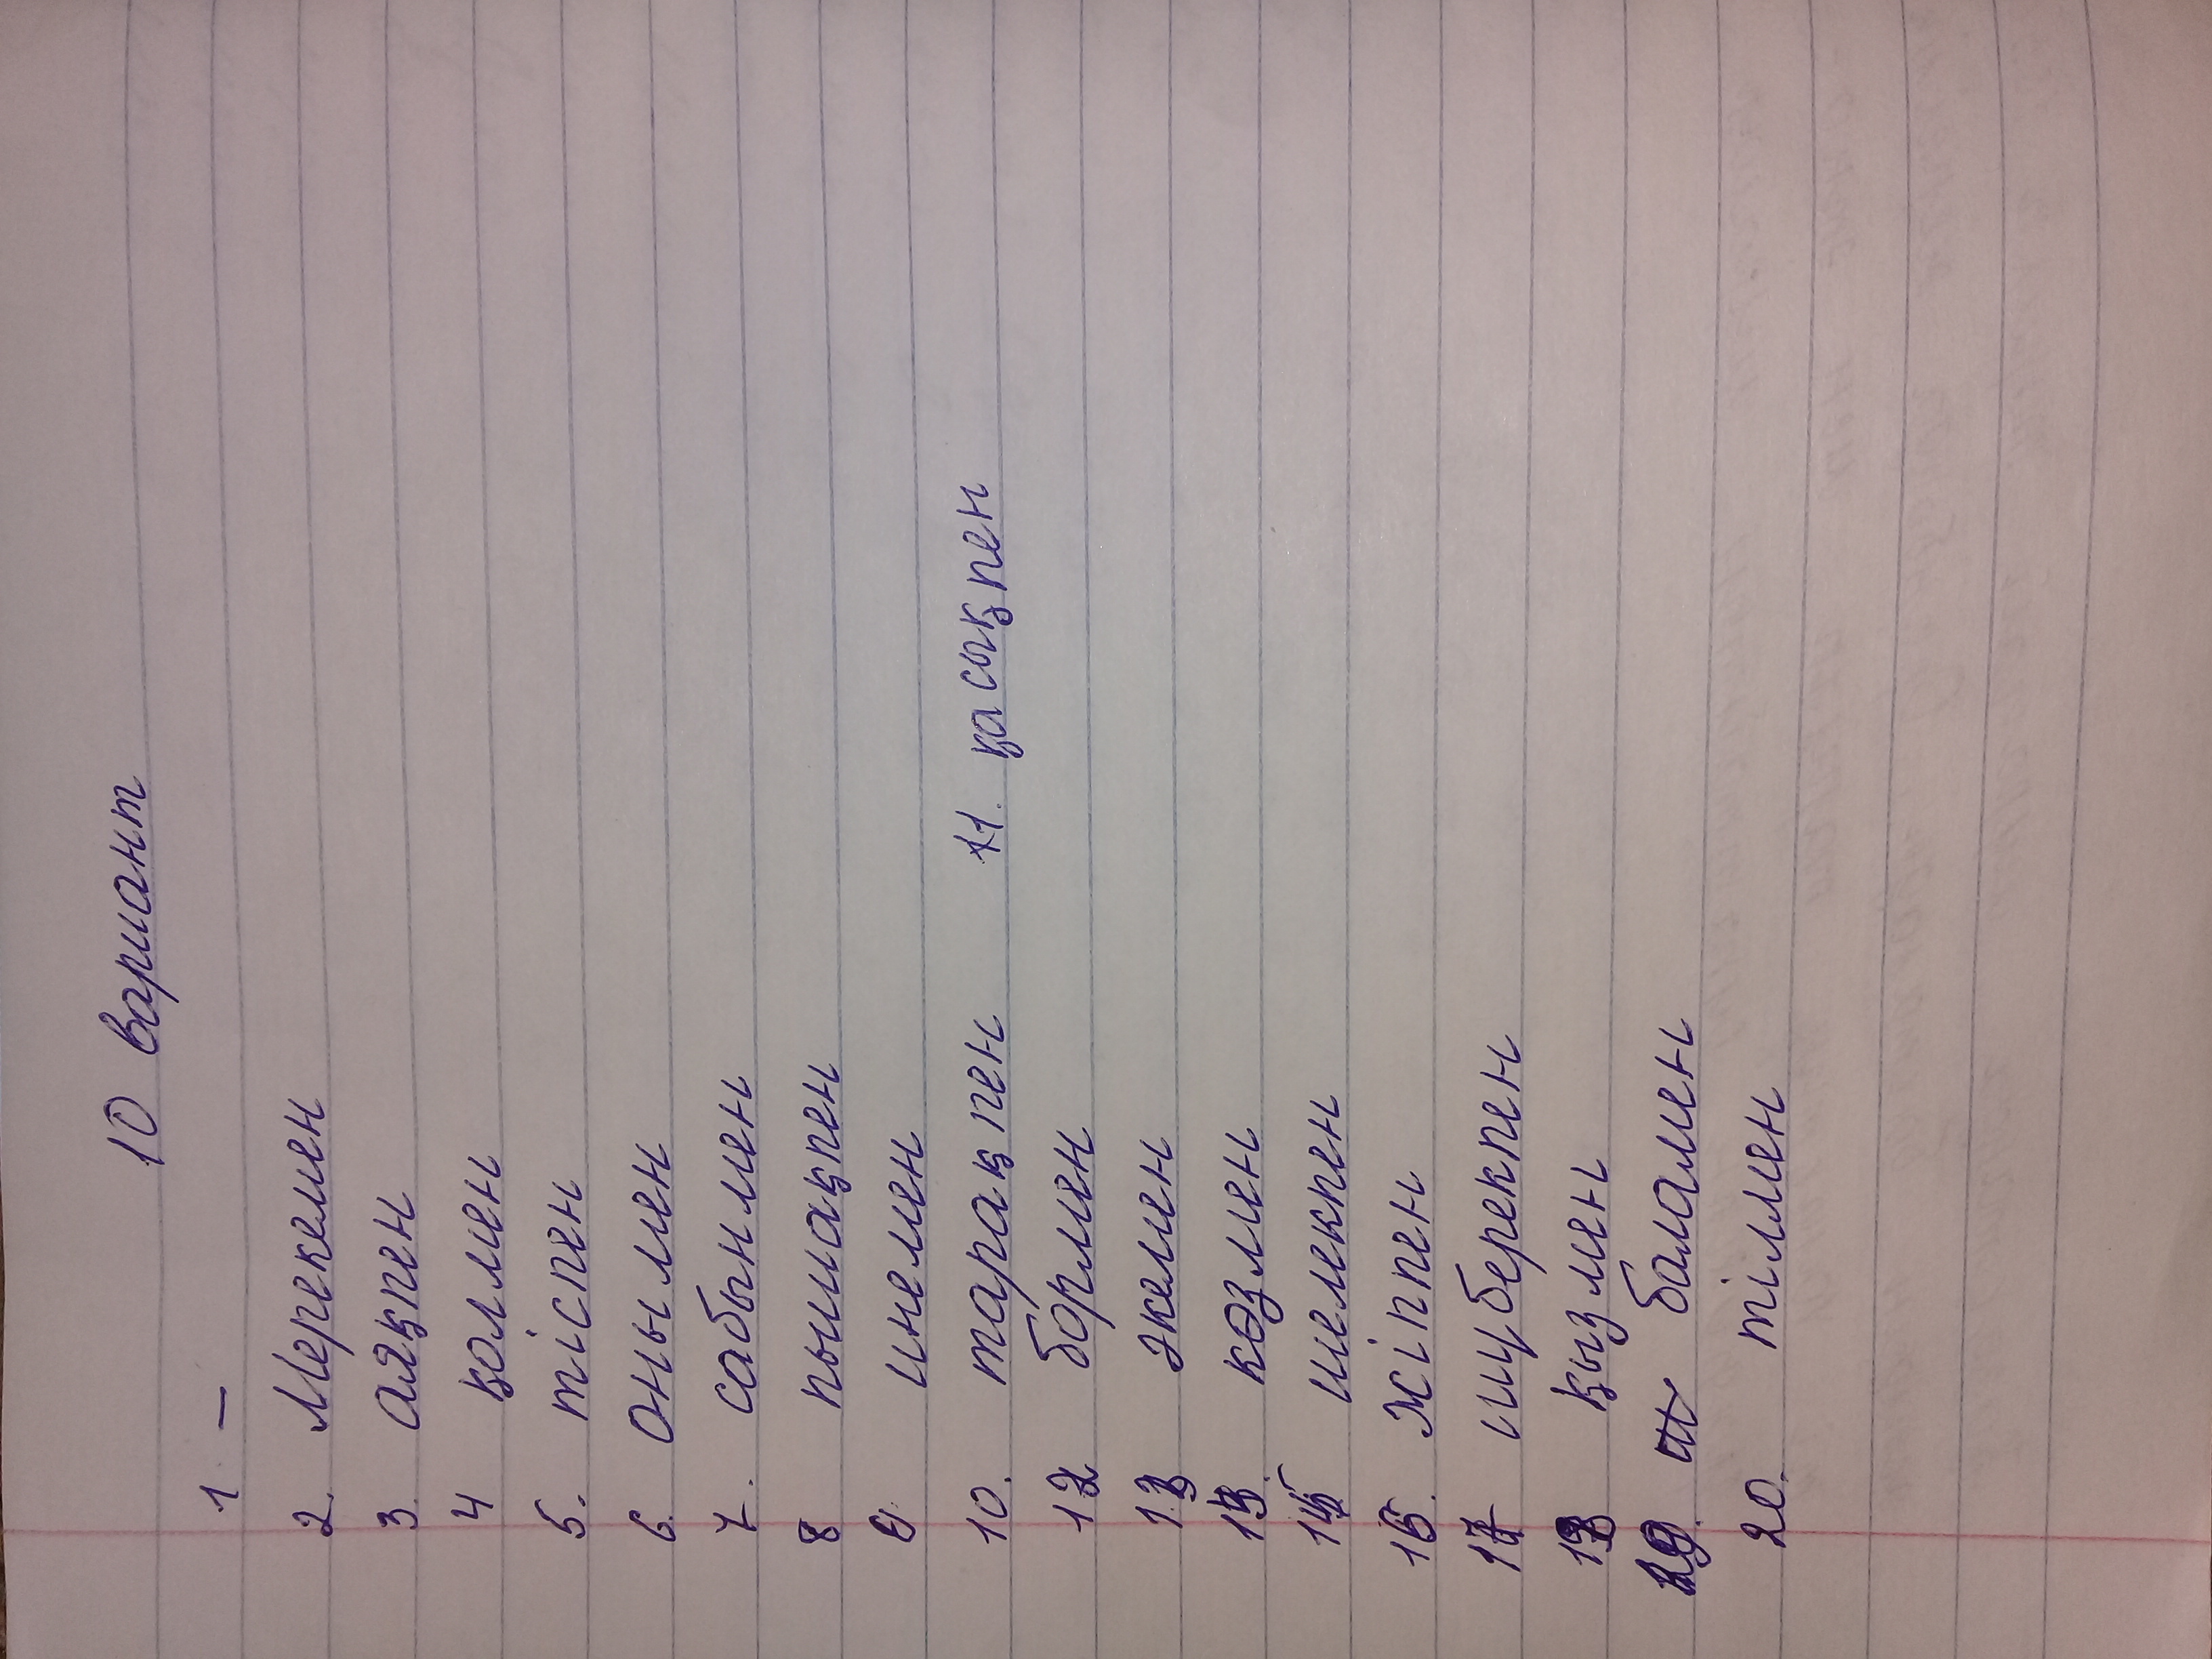 10 вариант
1. –
2. Мерекемен
3. аяқпен
4 қолмен
5. тіспен
6. Онымен
7. сабынмен
8 пышақпен
9. инемен
10. тарақпен 11. қасықпен
12 бормен
13 әкемен
14. көзмен
15 шелекпен
16. жіппен
17 щүберекпен
18 қызмен
19. баламен
20. тілмен